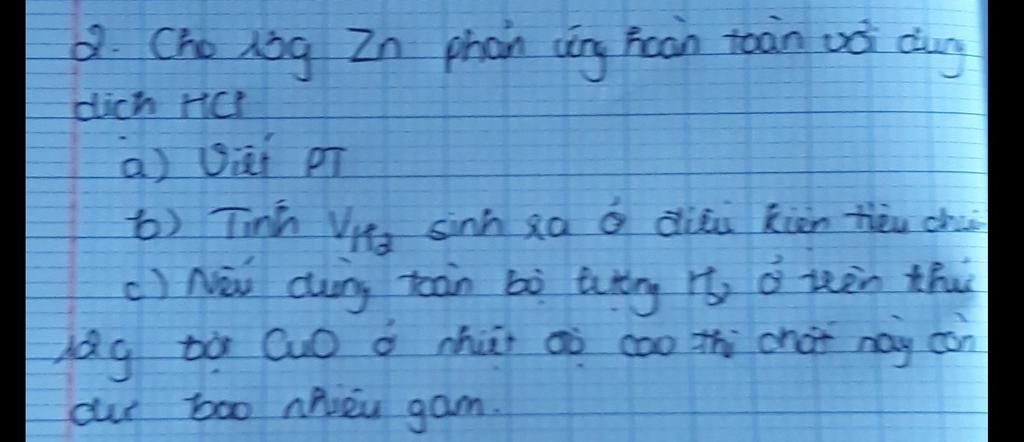 2. Cho 13g Zn phản ứng hoàn toàn với dung
dịch HCl
a) Viết PT
b) Tính VH2 sinh ra ở điều kiện tiêu
c) Nếu dùng toàn bộ lượng H2 ở trên
12g bột CuO ở nhiệt độ cao thì chất này còn
dư bao nhiêu gam.